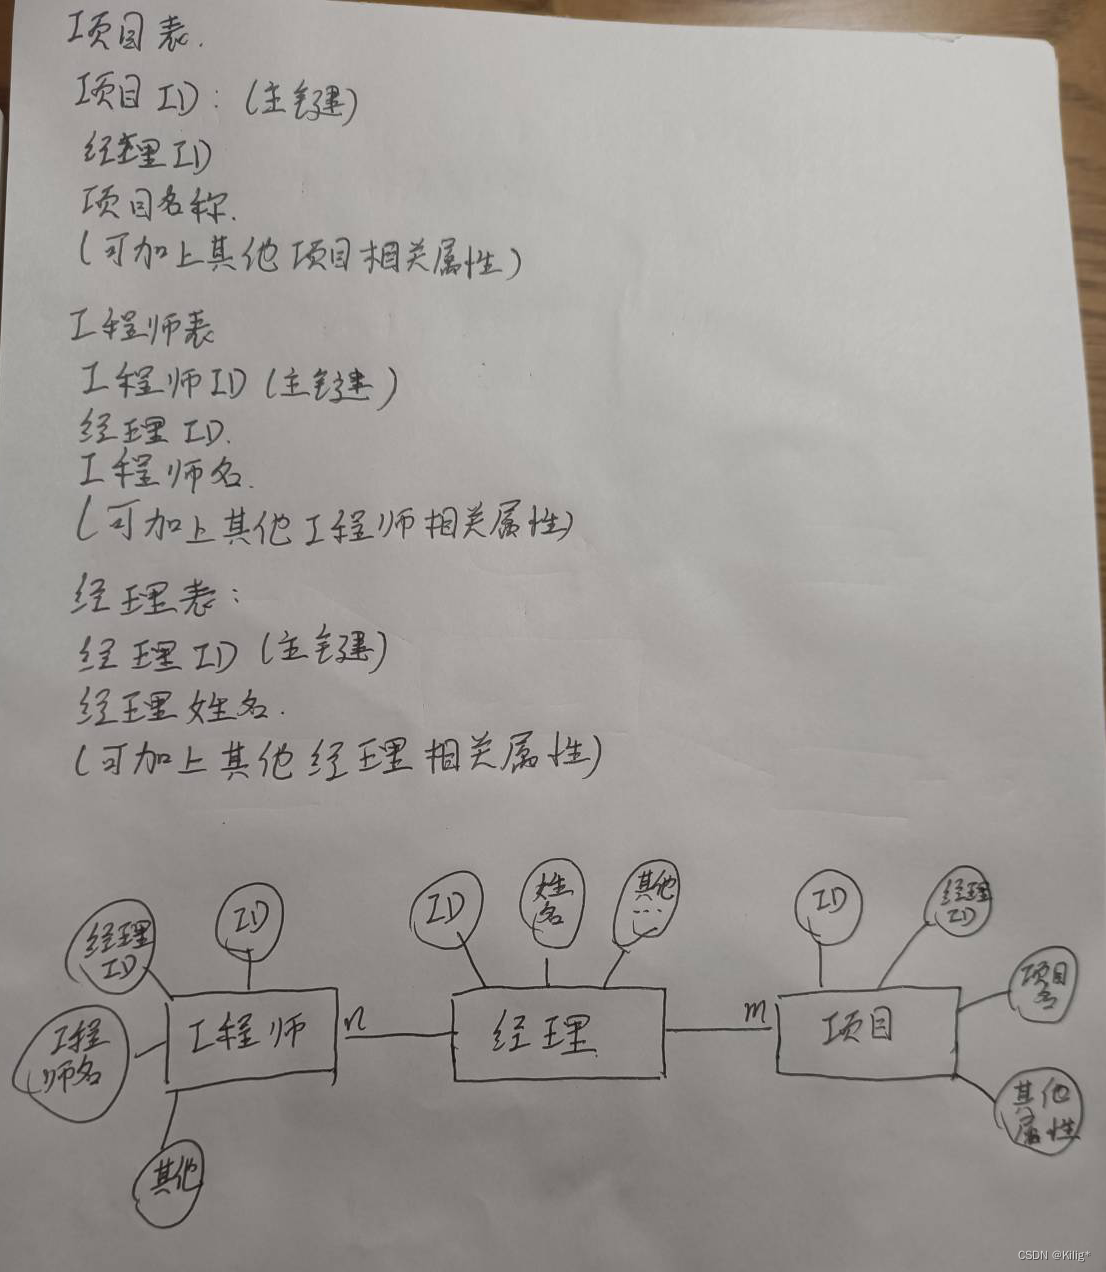 项目表.
项目ID:(主键)
经理ID
项目名称.
(可加上其他项目相关属性)
工程师表
工程师ID(主键)
经理ID.
工程师名.
(可加上其他工程师相关属性)
经理表:
经理ID(主键)
经理姓名.
(可加上其他经理相关属性)
经理
ID
ID
ID
姓
名
其他
...
ID
经理
ID
工程
师名
工程师
n
经理
m
项目
项目
名
其他
其他
属性
CSDN @Kilig*